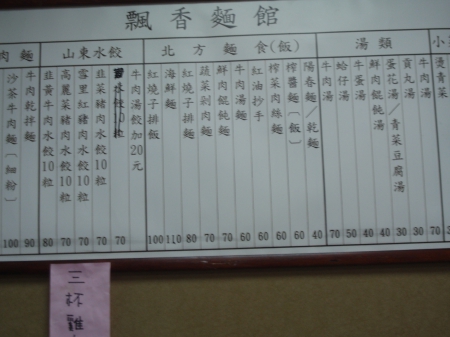 飄香麵館
肉麵
山東水餃
北方麵食(飯)
湯類
小
沙茶牛肉麵〔細粉〕 100
牛肉乾拌麵 90
韭黃牛肉水餃10粒 80
高麗菜豬肉水餃10粒 70
雪里紅豬肉水餃10粒 70
韭菜豬肉水餃10粒 70
水餃10粒 70
牛肉湯餃加20元
紅燒子排飯 100
海鮮麵 110
紅燒子排麵 80
蔬菜剁肉麵 70
鮮肉餛飩麵 70
牛肉湯麵 60
紅油抄手 60
榨菜肉絲麵 60
榨醬麵〔飯〕 60
陽春麵／乾麵 40
牛肉湯 70
蛤仔湯 50
牛蛋湯 40
鮮肉餛飩湯 40
蛋花湯／青菜豆腐湯 30
貢丸湯 30
燙青菜 70
三杯雞